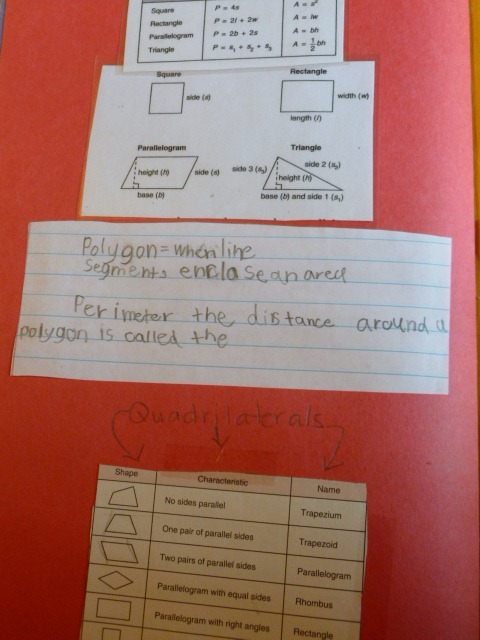 Square P = 4s A = s²
Rectangle P = 2l + 2w A = lw
Parallelogram P = 2b + 2s A = bh
Triangle P = s₁ + s₂ + s₃ A = ½bh
Square Rectangle
side (s) width (w)
length (l)
Parallelogram Triangle
height (h) side (s) side 3 (s₃) side 2 (s₂)
height (h)
base (b) base (b) and side 1 (s₁)
Polygon = when line
segments enclose an area
Perimeter the distance around a
polygon is called the
Quadrilaterals
Shape Characteristic Name
No sides parallel Trapezium
One pair of parallel sides Trapezoid
Two pairs of parallel sides Parallelogram
Parallelogram with equal sides Rhombus
Parallelogram with right angles Rectangle